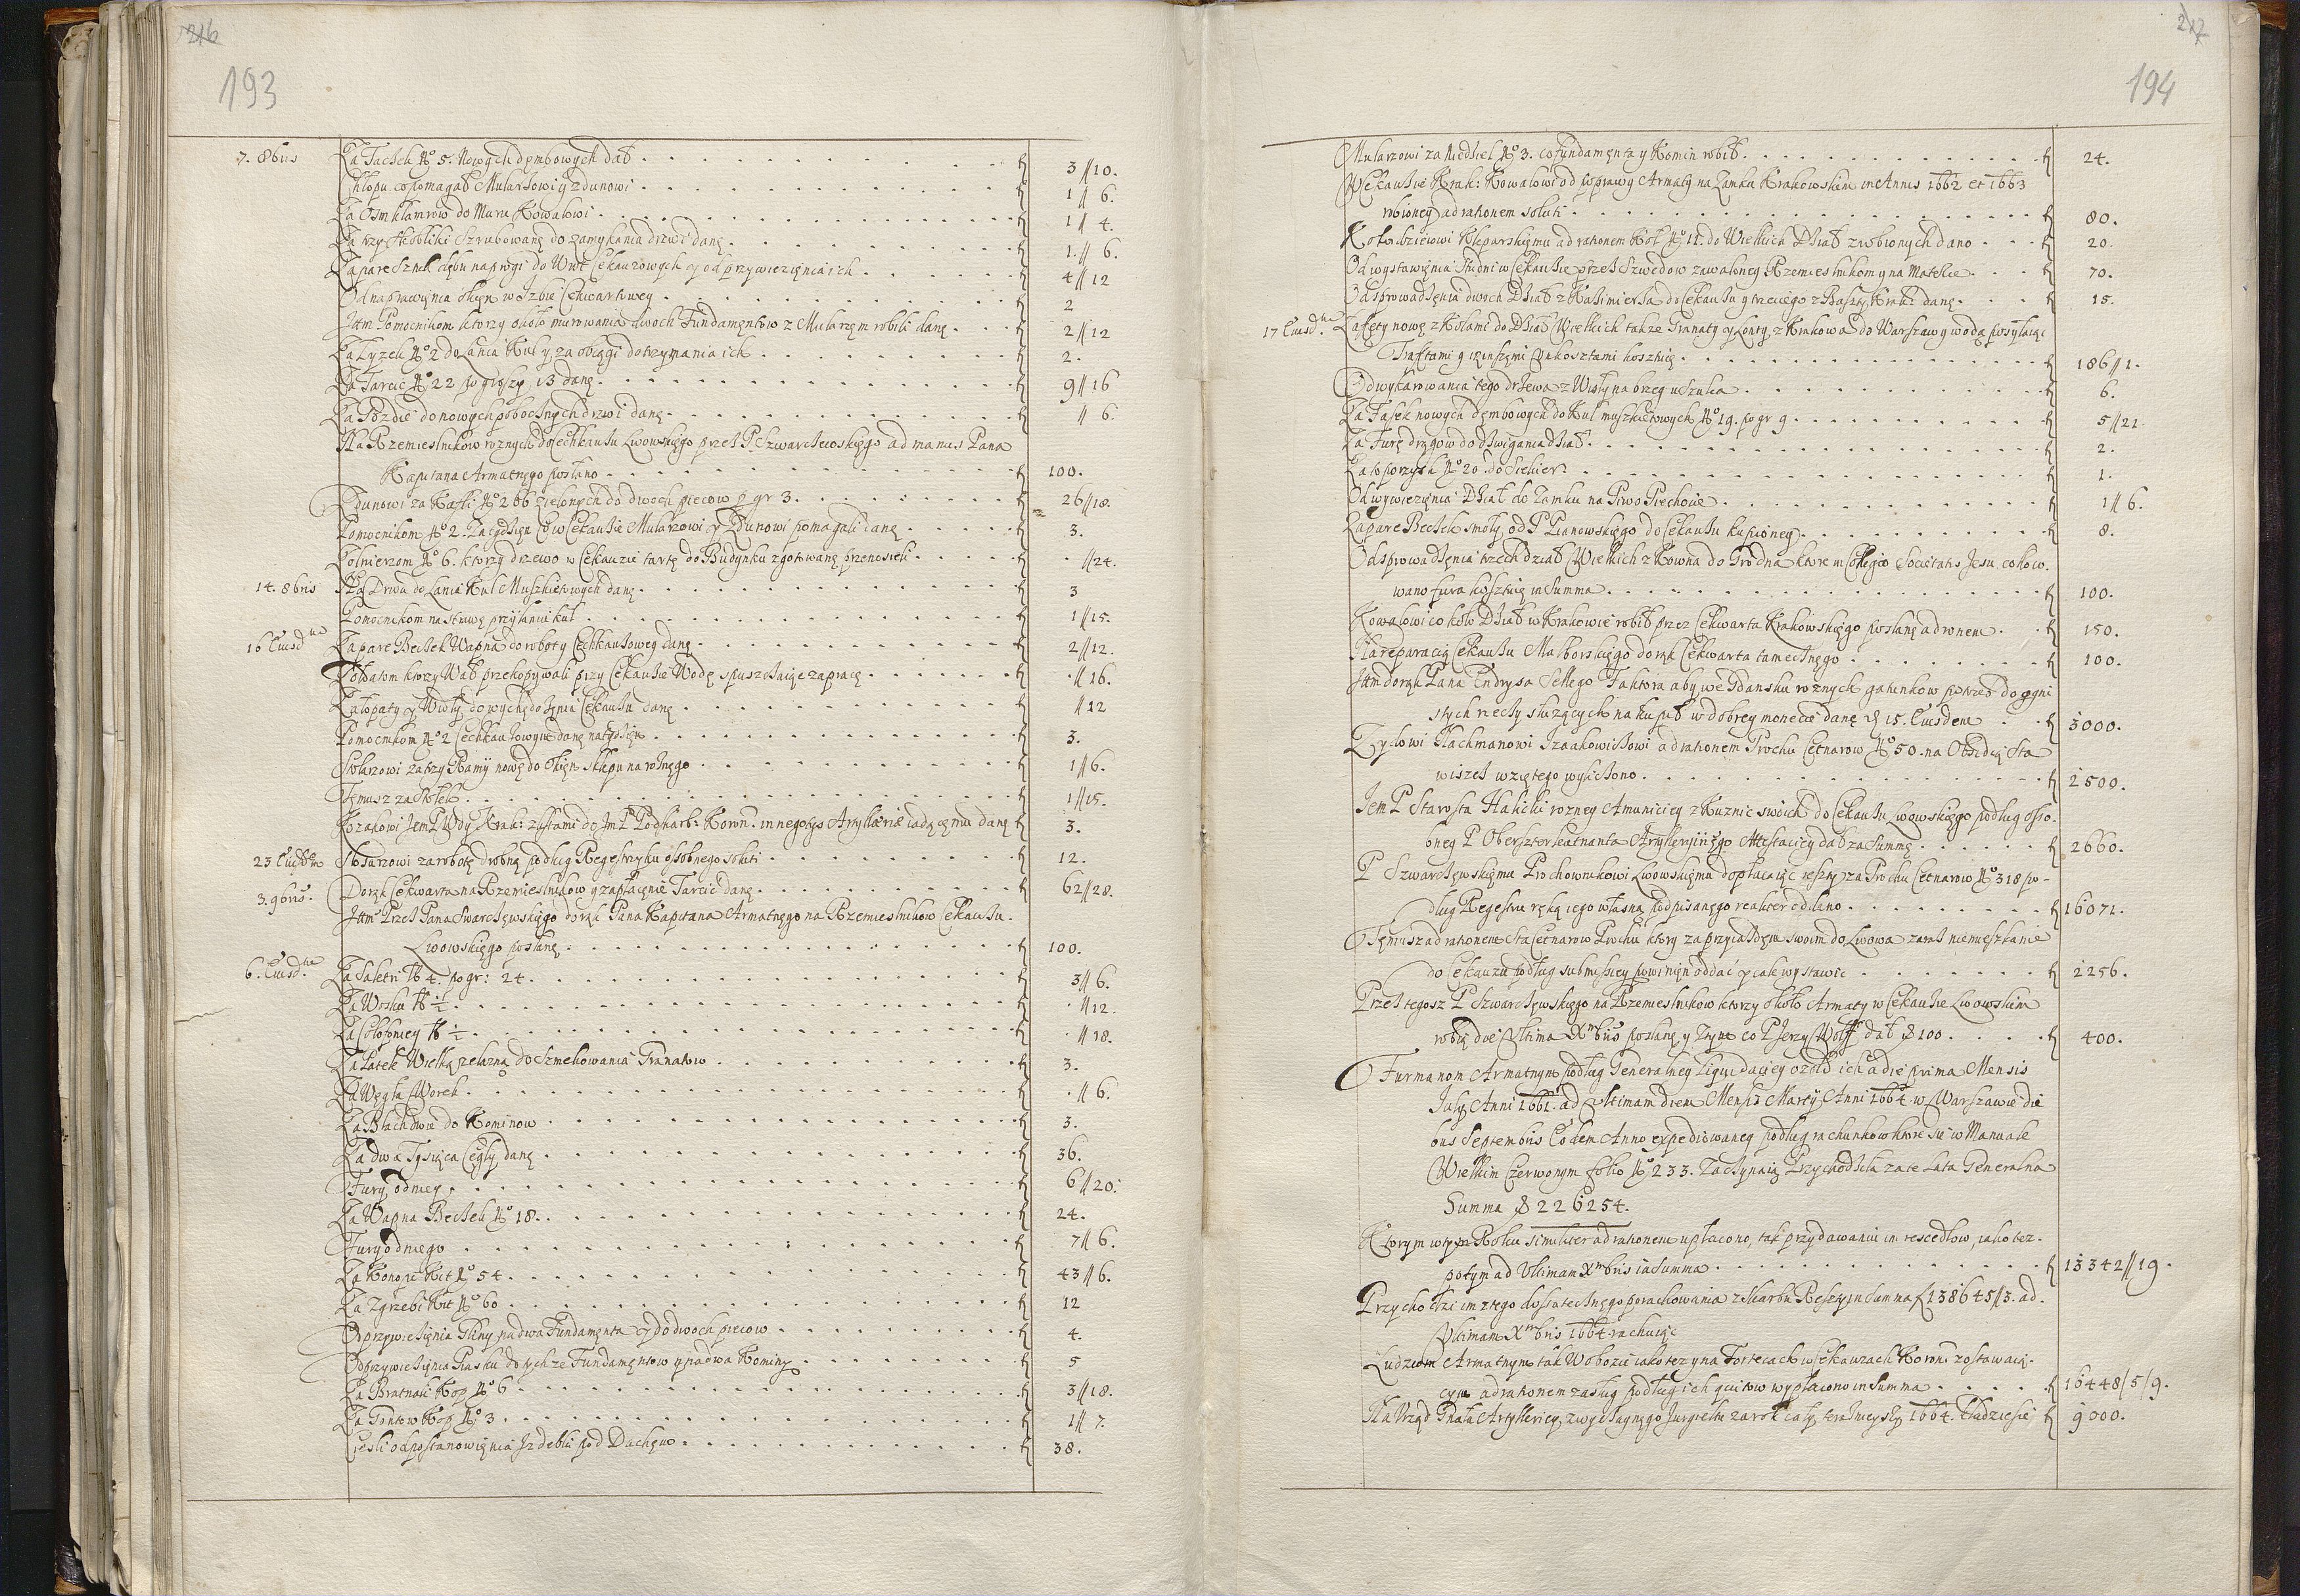 216
193
7. 8bris Za Taczek No 5. Nowych dembowych dał f 3//10.
Chłopu co pomagał Mularzowi y zdunowi f 1// 6.
Za Osm klamrow do Muru Kowalowi f 1// 4.
Za trzy skobliki Szrubowane do zamykania drzwi dane f 1.// 6.
Za pare Sztuk dębu na progi do Wrot Cekauzowych y od przywiezienia ich f 4//12
Od naprawienia okien w Izbie Cekwartowey f 2
Item Pomocnikom ktorzy około murowania dwoch Fundamentow z Mularzem robili dane f 2//12
Za Łyzek No 2 do Lania Kul y za obcągi do trzymania ich f 2.
Za Tarcic No 22 po groszy 13 dane f 9//16
Za Gozdzie do nowych pobocznych drzwi dane f // 6.
Na Rzemieslnikow roznych do Cechkauzu Lwowskiego przez P Szwarczewskiego ad manus Pana
Kapitana Armatnego posłano f 100.
Zdunowi za Kafli No 266 zielonych do dwoch piecow p gr 3. f 26//18.
Pomocnikom No 2. Za tydzien co w Cekauzie Mularzowi y Zdunowi pomagali dane f 3.
Zołnierzom No 6. ktorzy drzewo w Cekauzie tarte do Budynku zgotowane przenosieli f //24.
14. 8bris Za Drwa do Lania Kul Muszkietowych dane f 3
Pomocnikom na strawę przy laniu kul f 1//15.
16 Eiusdem Za pare Beczek Wapna do roboty Cechkauzowey dane f 2//12.
Zołdatom ktorzy Wał przekopywali przy Cekauzie Wodę spuszczaiąc za pracę f //16.
Za łopaty y Miotły do wychędozenia Cekauzu dane f //12
Pomocnikom No 2 Cechkauzowym dane na tydzien f 3.
Stolarzowi za trzy Ramy nowe do okien Sklepu naroznego f 1//6.
Temusz za Stołek f 1//15.
Kozakowi Jem P Wdy Krak: z listami do Jm P Podskarb: Koron: in negotio Artylleriae iadącemu dane f 3.
23 Eiusdem Slosarzowi za robotę drobną podług Regestrzyku osobnego soluti f 12.
3. 9bris. Do rąk Cekwarta na Rzemieslnikow y zapłacenie Tarcic dane f 62//28.
Item Przez Pana Swarczewskiego do rąk Pana Kapitana Armatnego na Rzemieslnikow Cekauzu
Lwowskiego posłane f 100.
6. Eiusdem Za Saletri ℔ 4. po gr: 24 f 3//6.
Za Wosku ℔ ½ f //12.
Za Colofoniey ℔ ½ f //18.
Za Łatek Wielką zelazną do Szmelcowania Granatow f 3.
Za Węgla Worek f // 6.
Za Blach dwie do Kominow f 3.
Za dwa Tysiąca Cegły dane f 36.
Fury od niey f 6//20.
Za Wapna Beczek No 18. f 24.
Fury od niego f 7// 6.
Za Konopi Kit No 54 f 43//6.
Za Zgrzebi Kit No 60 f 12
Od przywiezienia Gliny na dwa Fundamenta y do dwoch piecow f 4.
Od przywiezienia Piasku do tychze Fundamentow y na dwa Kominy f 5
Za Bratnali Kop No 6 f 3//18.
Za Gontow Kop No 3 f 1// 7.
Ciesli od postanowienia Izdebki pod Dachem f 38.
217
194
Mularzowi za Niedziel No 3. co fundamenta y Komin robił f 24.
W Cekauzie Krak: Kowalowi od poprawy Armaty na Zamku Krakowskim in Annis 1662 et 1663
robioney ad rationem soluti f 80.
Kołodzieiowi Kleparskiemu ad rationem Kół No 11. do Wielkich Dział zrobionych dano f 20.
Od wystawienia Studni w Cekauzie przez Szwedow zawaloney Rzemieslnikom y na Materie f 70.
Od sprowadzenia dwoch Dział z Kazimierza do Cekauzu y trzeciego z Baszty Krak: dane f 15.
17 Eiusdem Lafety nowe z Kołami do Dział Wielkich takze Granaty y Lonty z Krakowa do Warszawy wodą posyłaiąc
Traftami y inszemi Unkosztami kosztuie f 186//1.
Od wykarowania tego drzewa z Wisły na brzeg u Szulca f 6.
Za Fasek nowych dembowych do Kul muszkietowych No 19. po gr 9 f 5//21
Za Furę drągow do dzwigania dział f 2.
Za toporzysk No 20 do Siekier f 1.
Od wywiezienia Dział do Zamku na Piwo Piechocie f 1//6.
Za pare Beczek smoły od P Pianowskiego do Cekauzu kupioney f 8.
Od sprowadzenia trzech dział Wielkich z Kowna do Grodna ktore in Collegio Societatis Jesu cohow.
wano fura kosztuie in Summa f 100.
Kowalowi co koło Dział w Krakowie robił przez Cekwarta Krakowskiego posłane ad ronem f 150.
Na reparacią Cekauzu Malborskiego do rąk Cekwarta tamecznego f 100.
Item do rąk Pana Endrysa Sellego Faktora aby we Gdansku roznych gatunkow potrzeb do ogni
stych rzeczy słuzących nakupił w dobrey monecie dane d 15. Eiusdem f 3000.
Zydowi Nachmanowi Izaakowiczowi ad rationem Prochu Cetnarow No 50. na Obsidię Sta
wiszcz wziętego wyliczono f 2500.
Jem P Starosta Halicki rozney Amunicicy z Kuznic swoich do Cekauzu Lwowskiego podług oso.
bney P Oberszterleutnanta Artylleryiskiego Attestaciey dał za Summę f 2660.
P Szwarczewskiemu Prochownikowi Lwowskiemu dopłacaiąc reszty za Prochu Cetnarow No 318 po-
dług Regestru ręką iego własną podpisanego realiter oddano f 16071.
Temusz ad rationem Sta Cetnarow Prochu ktory za przyiazdem swoim do Lwowa zaraz niemieszkanie
do Cekauzu podług submissiey powinien oddać y cale wystawic f 2256.
Przez tegosz P Szwarczewskiego na Rzemieslnikow ktorzy około Armaty w Cekauzie Lwowskim
robią die Ultima Xmbris posłane y z tym co P Jerzy Wolff dał f 100 f 400.
Furmanom Armatnym podług Generalney Liquidaciey o zołd ich a die prima Mensis
July Anni 1661. ad Ultimam diem Mensis Marty Anni 1664. w Warszawie die
bus Septembris Eodem Anno expediowaney podług rachunkow ktore się w Manuale
Wielkim Czerwonym folio No 233. Zaczynaią Przychodziła za te Lata Generalna
Summa f 226254.
Ktorym w tym Roku similiter ad rationem upłacono, tak przy dawaniu im rescedlow, iako tez.
potym ad Ultimam Xmbris in Summa f 13342//19.
Przychodzi im z tego dostatecznego porachowania z Skarbu Reszty in Summa f 138645//3. ad.
Ultimam Xmbris 1664 rachuiąc
Ludziom Armatnym tak W obozie iako tez y na Fortecach w Cekauzach Koron: zostawaią-
cym ad rationem zasług podług ich quitow wypłacono in Summa f 16448/5/9.
Na Urząd Gnała Artylleriey zwyczaynego Jurgieltu za rok cały teraznieyszy 1664. kładzie się f 9000.